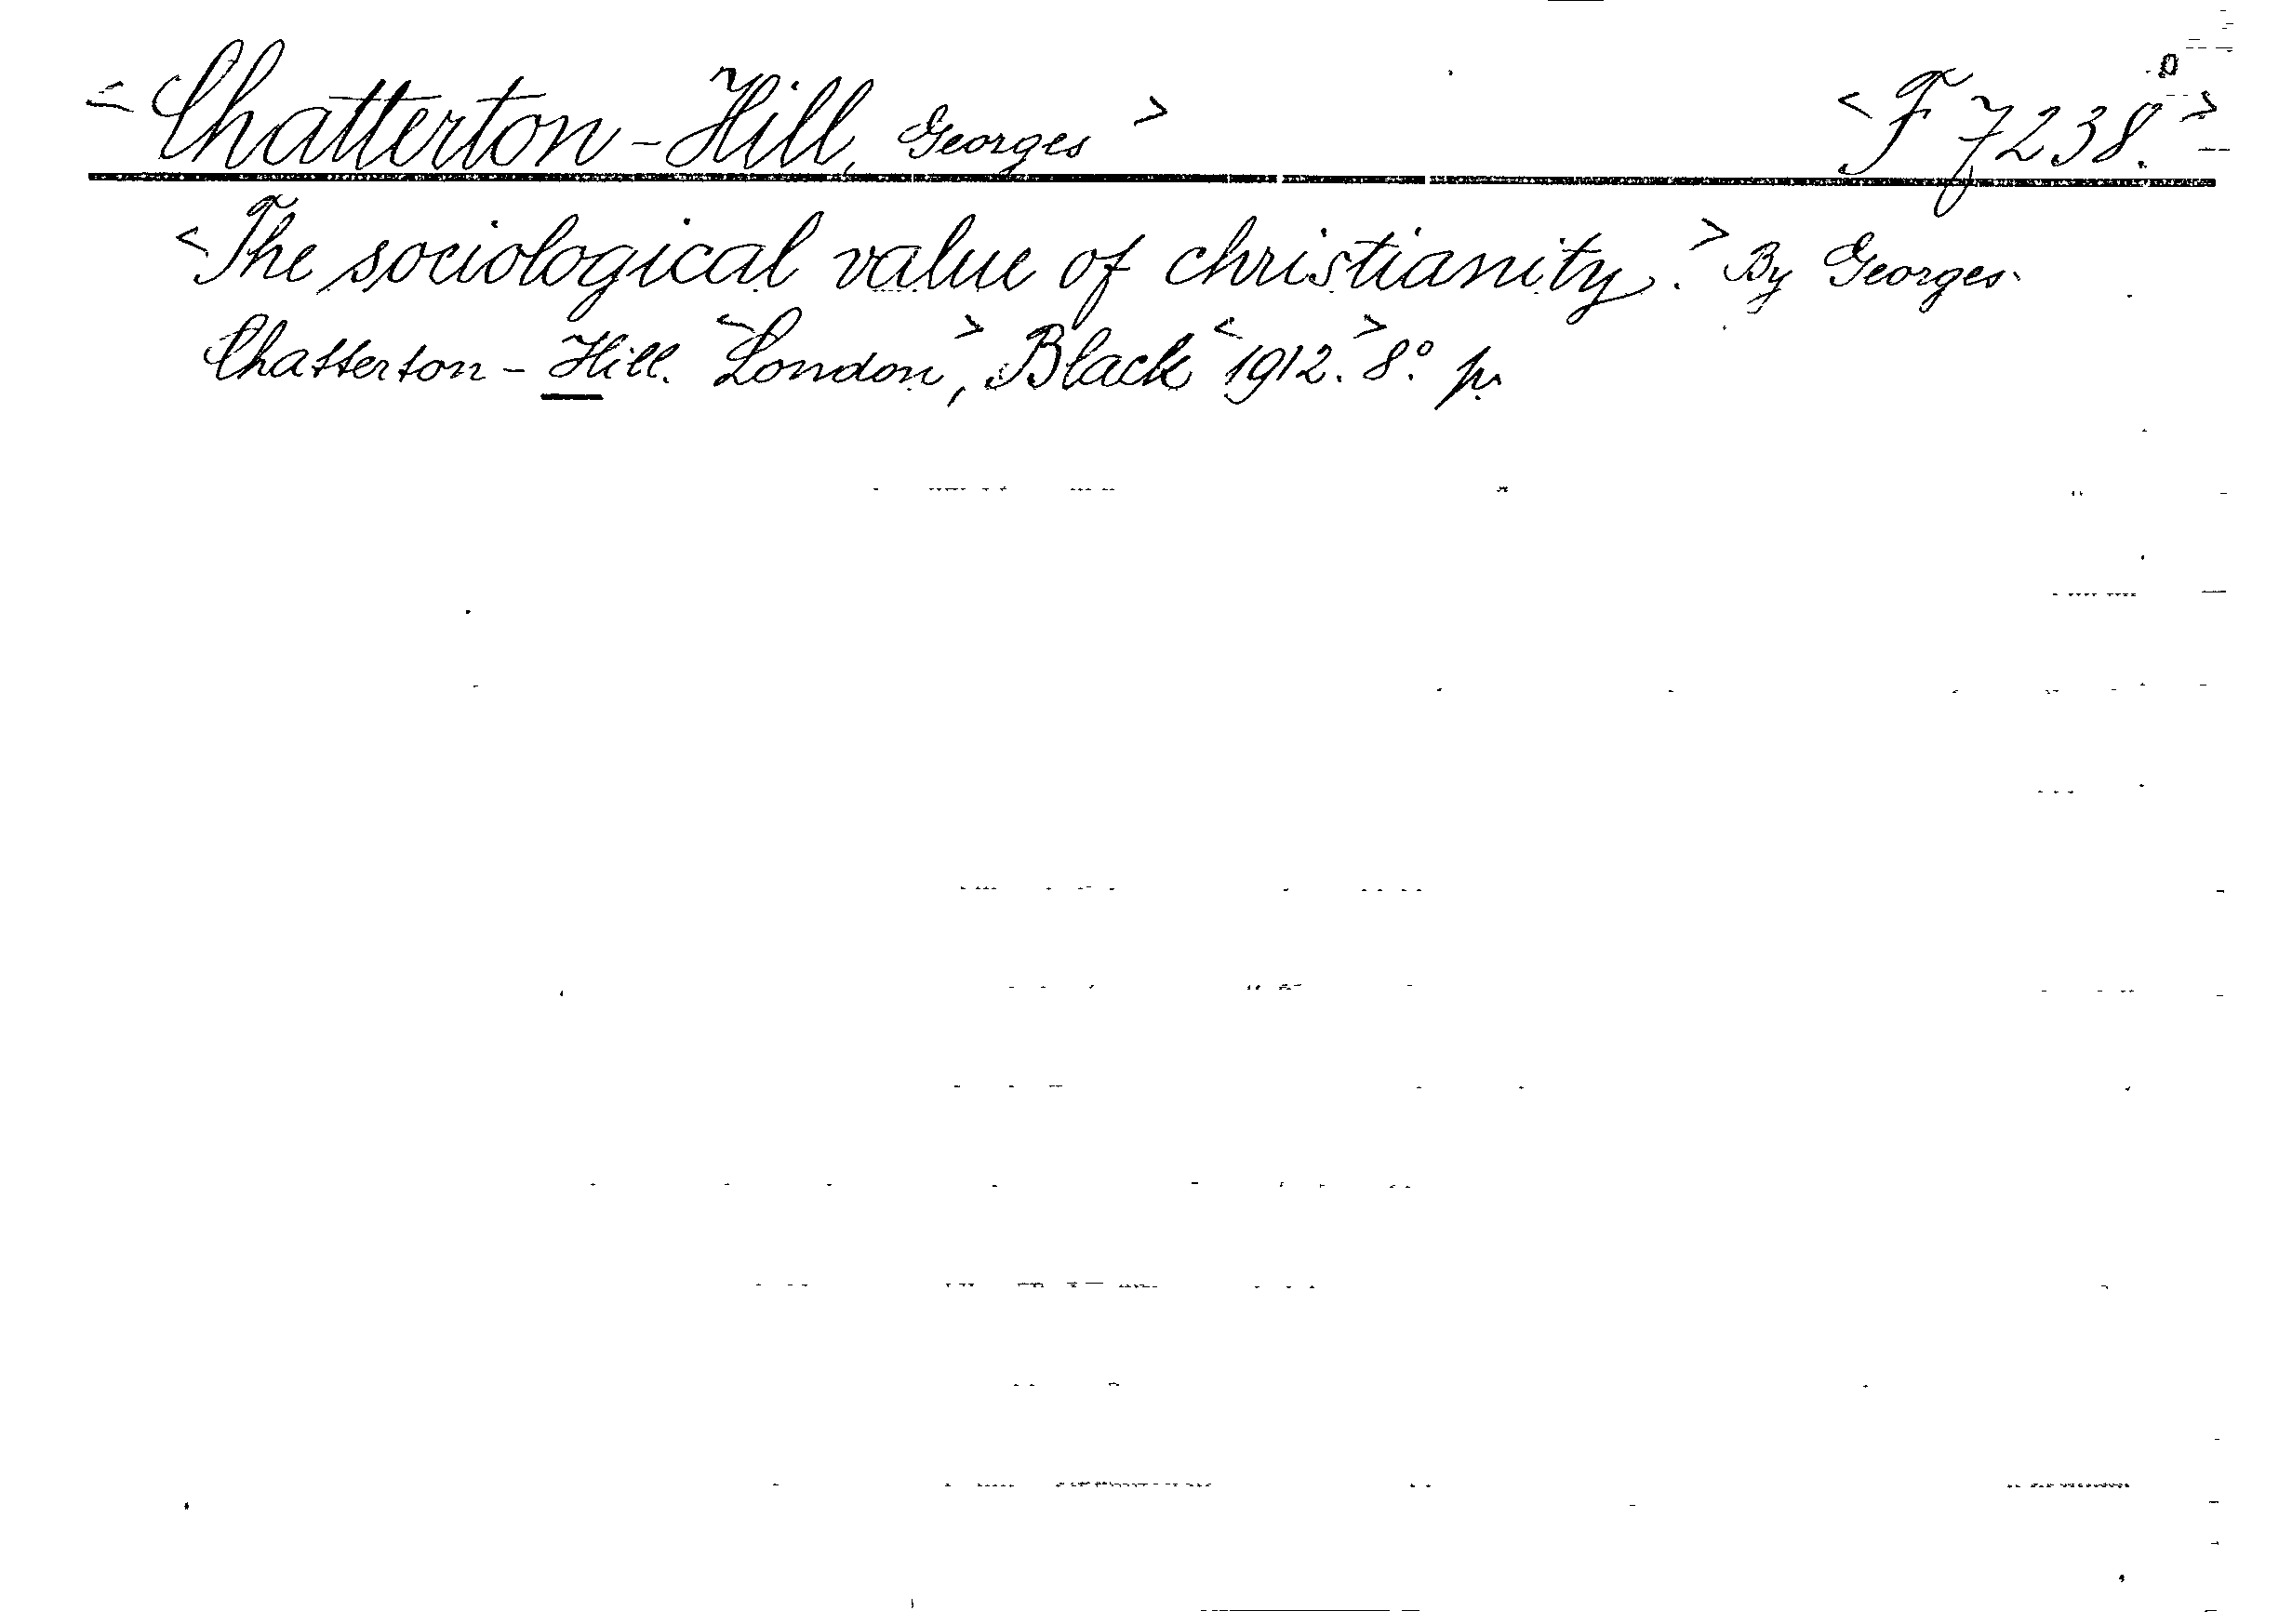 <Chatterton-Hill, Georges> <F 7238.>
<The sociological value of christianity.> By Georges
Chatterton-Hill. <London>, Black <1912.> 8° p.